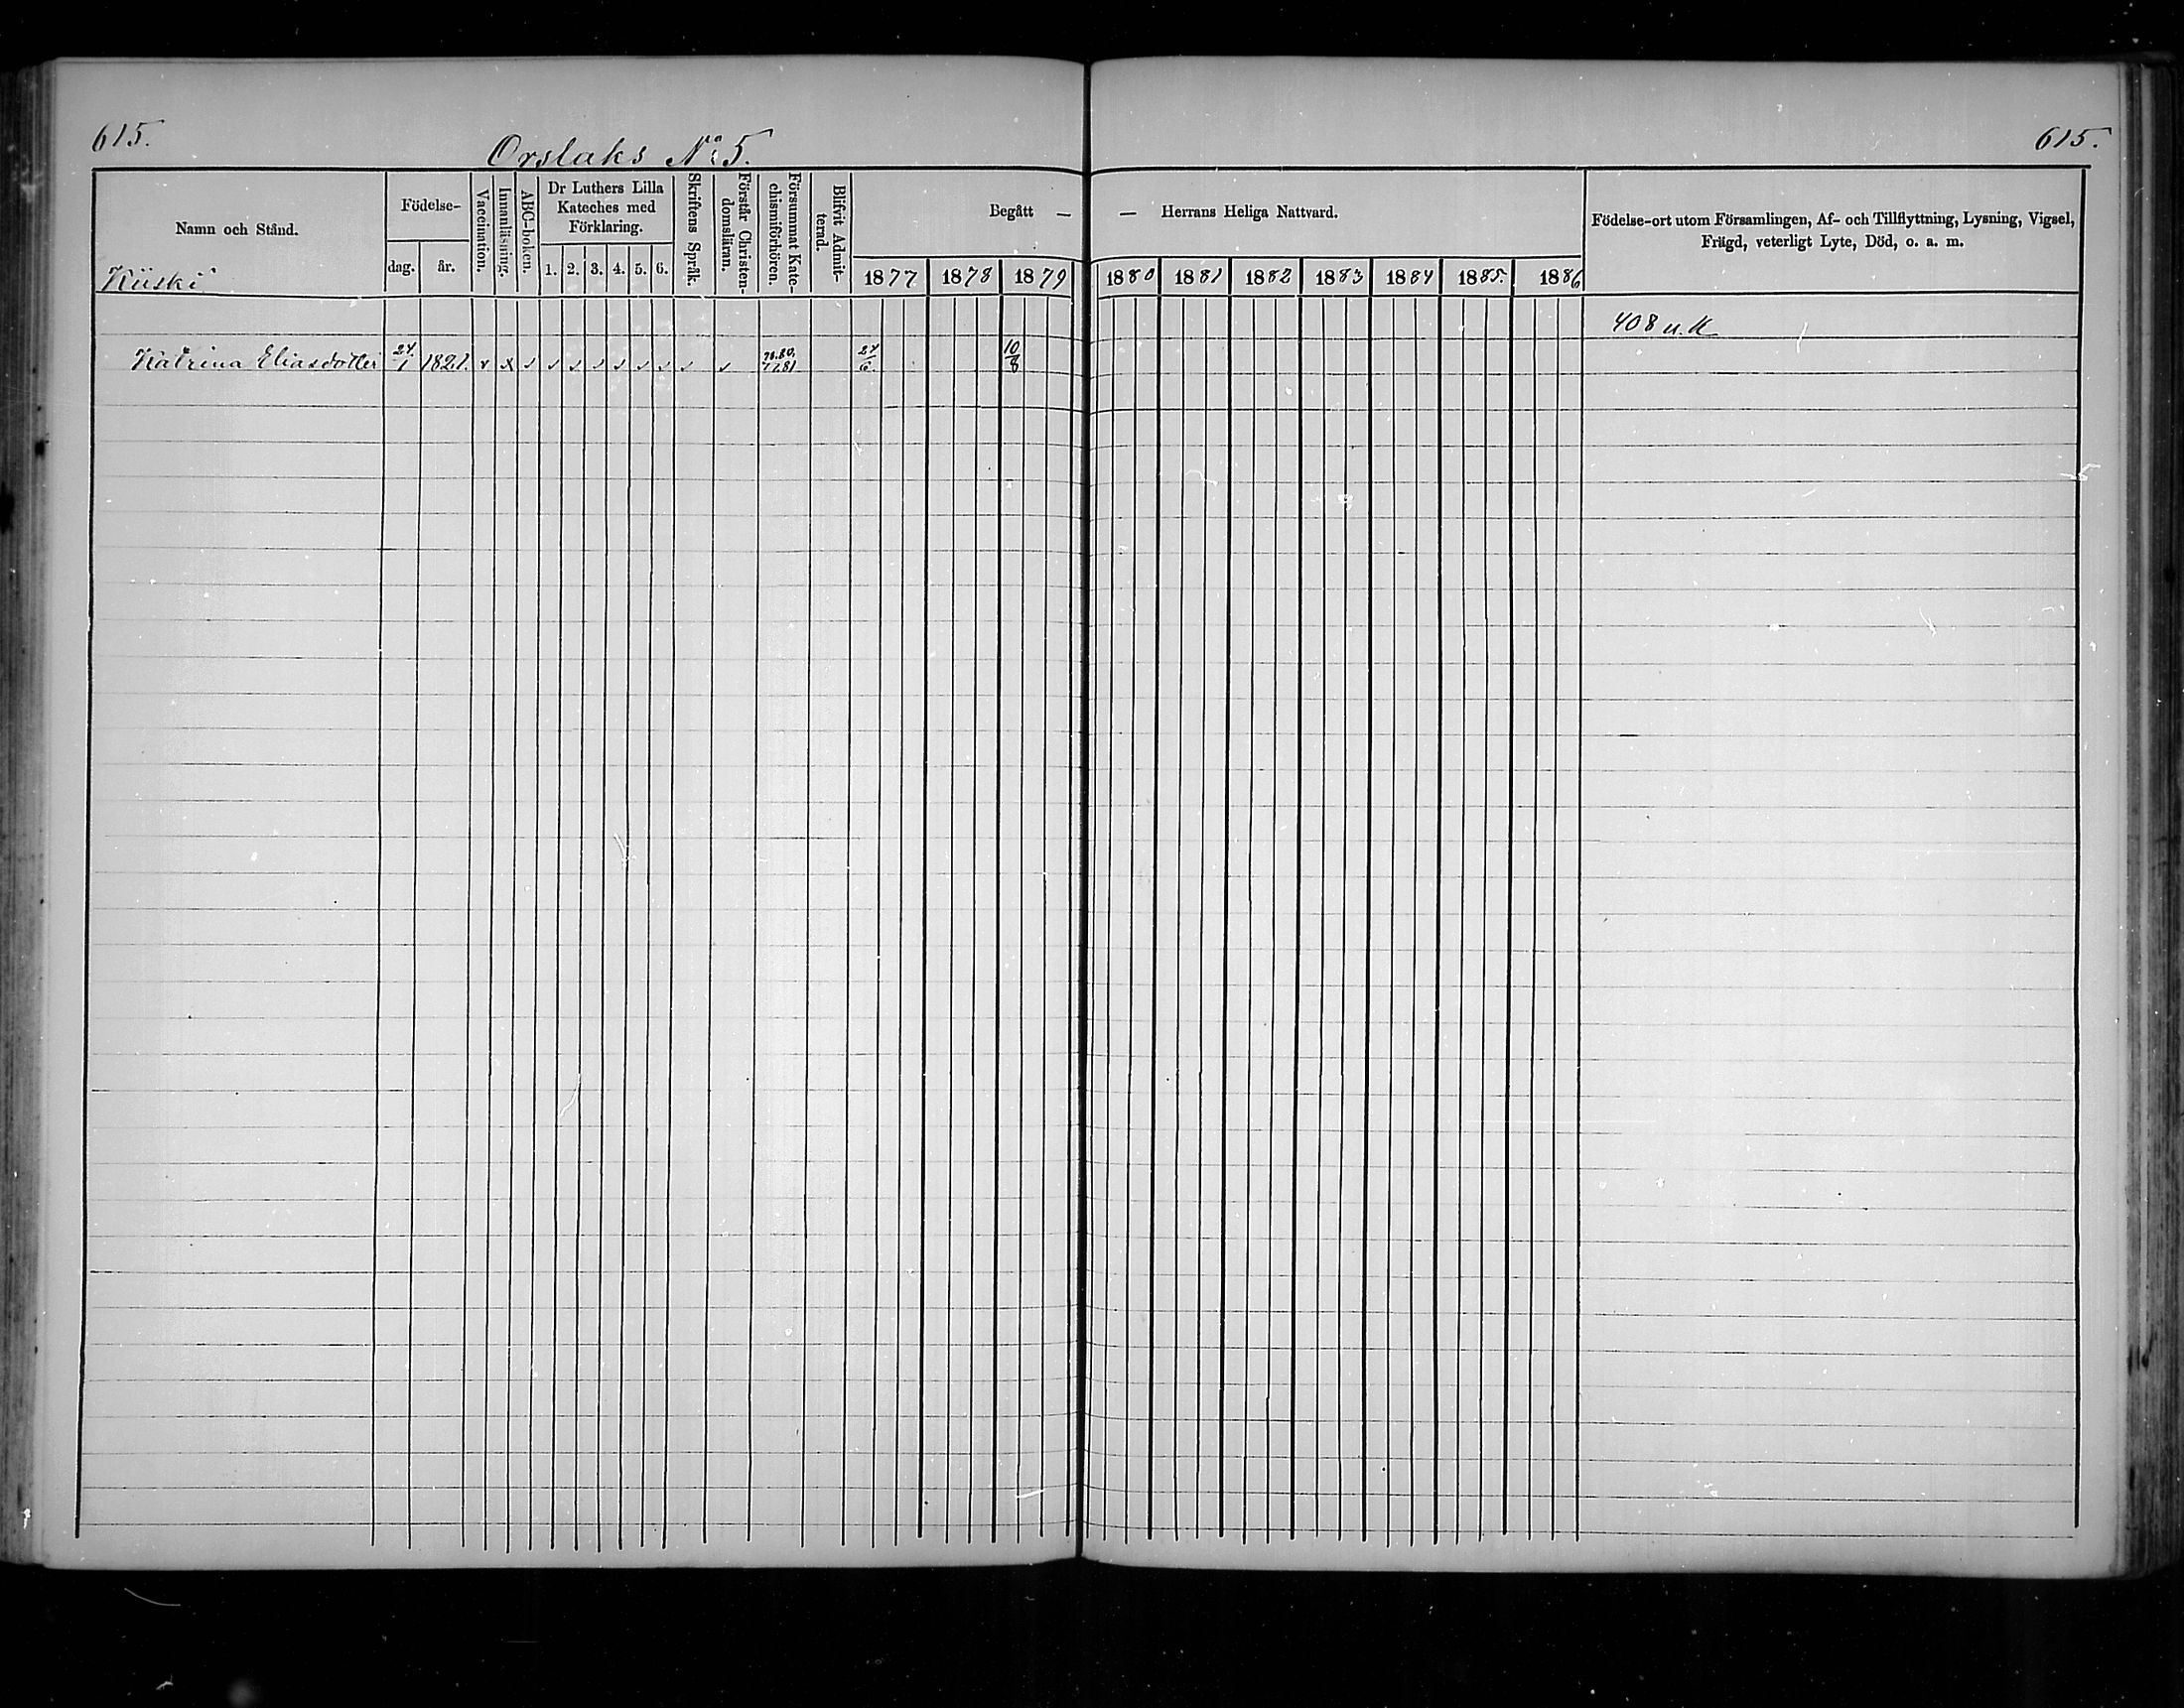 615.
Orslaks No 5.
615.
Namn och Stånd.
Kiiski
Födelse-
dag.
år.
Vaccination.
Innanläsning.
ABC-boken.
Dr Luthers Lilla
Kateches med
Förklaring.
1. 2. 3. 4. 5. 6.
Skriftens Språk.
Förstår Christen-
domsläran.
Försummat Kate-
chismiförhören.
Blifvit Admit-
terad.
Begått — — Herrans Heliga Nattvard.
1877 1878 1879 1880 1881 1882 1883 1884 1885. 1886
Födelse-ort utom Församlingen, Af- och Tillflyttning, Lysning, Vigsel,
Frägd, veterligt Lyte, Död, o. a. m.
408 u. K
Katrina Eliasdotter 24./1 1821. 24/6 10/8